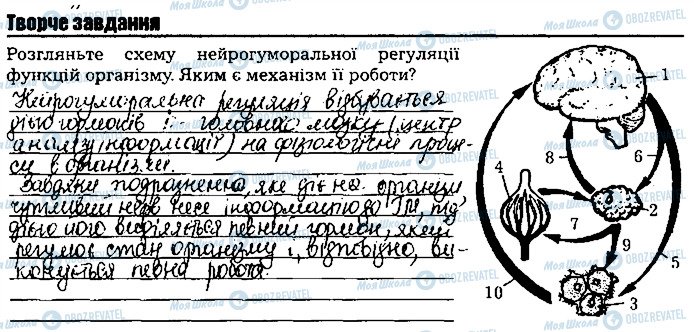 Творче завдання
Розгляньте схему нейрогуморальної регуляції
функцій організму. Яким є механізм її роботи?
Нейрогуморальна регуляція відбувається
дією гормонів і головного мозку (центр
аналізу інформації) на фізіологічні проце-
си в організмі.
Завдяки подразнення, яке діє на органи
чутливий нерв несе інформацію до ГМ, під
дією його виділяється певний гормон, який
регулює стан організму і, відповідно, ви-
конується певна робота.
1
8
6
4
2
7
9
10
5
3